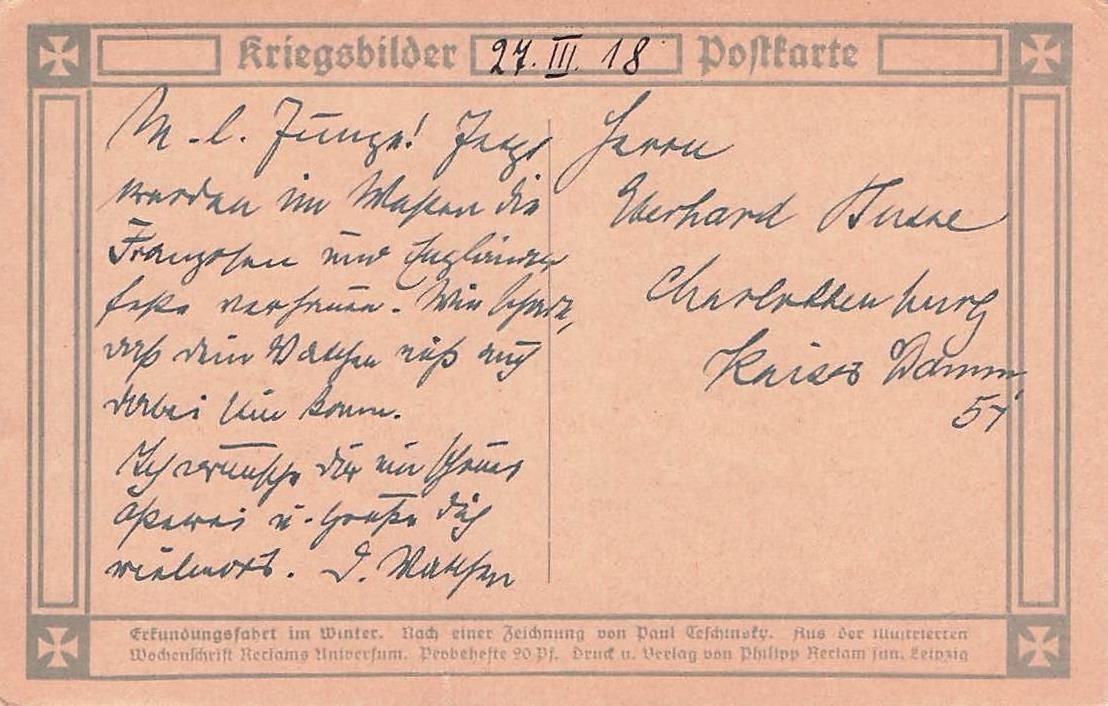 Kriegsbilder 27. III. 18 Postkarte
M. l. Junge! Jetzt
werden im Westen die
Franzosen und Engländer
feste verhauen. Wie schade,
daß dein
dabei sein kann.
Ich wünsche dir ein schönes
Osterei u. grüße dich
vielmals. D.
Herrn
Eberhard
Charlottenburg
Kaiser Damm
Erkundungsfahrt im Winter. Nach einer Zeichnung von Paul Teschinsky. Aus der Illustrierten
Wochenschrift Reclams Universum. Probehefte 20 Pf. Druck u. Verlag von Philipp Reclam jun. Leipzig